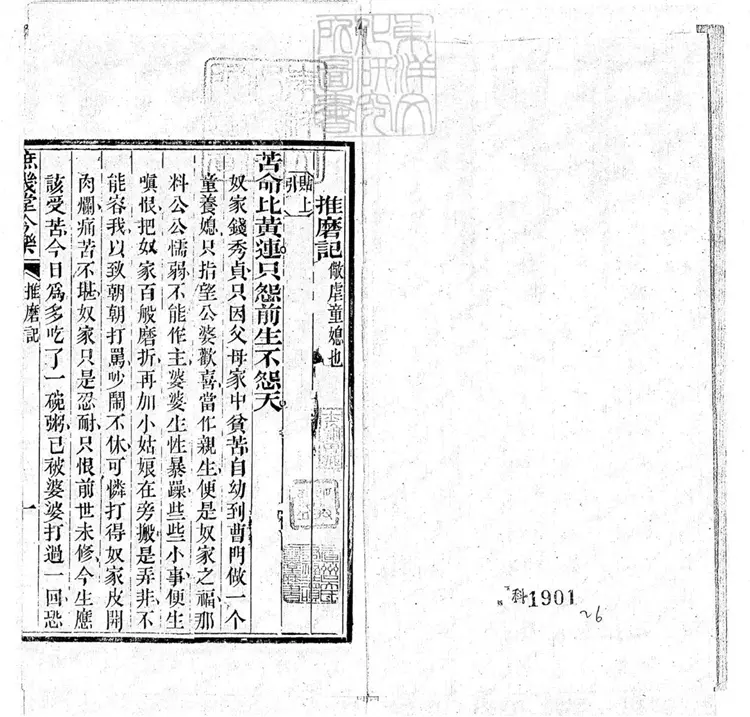 東洋文
化研究
所圖書
推磨記 儆虐童媳也
引 貼上
苦命比黃連只怨前生不怨天
奴家錢秀貞只因父母家中貧苦自幼到曹門做一个
童養媳只指望公婆歡喜當作親生便是奴家之福那
料公公懦弱不能作主婆婆生性暴躁些些小事便生
嗔恨把奴家百般磨折再加小姑娘在旁搬是弄非不
能容我以致朝朝打罵吵鬧不休可憐打得奴家皮開
肉爛痛苦不堪奴家只是忍耐只恨前世未修今生應
該受苦今日爲多吃了一碗粥已被婆婆打過一回恐
庶幾堂今樂 推磨記 一
科1901
26